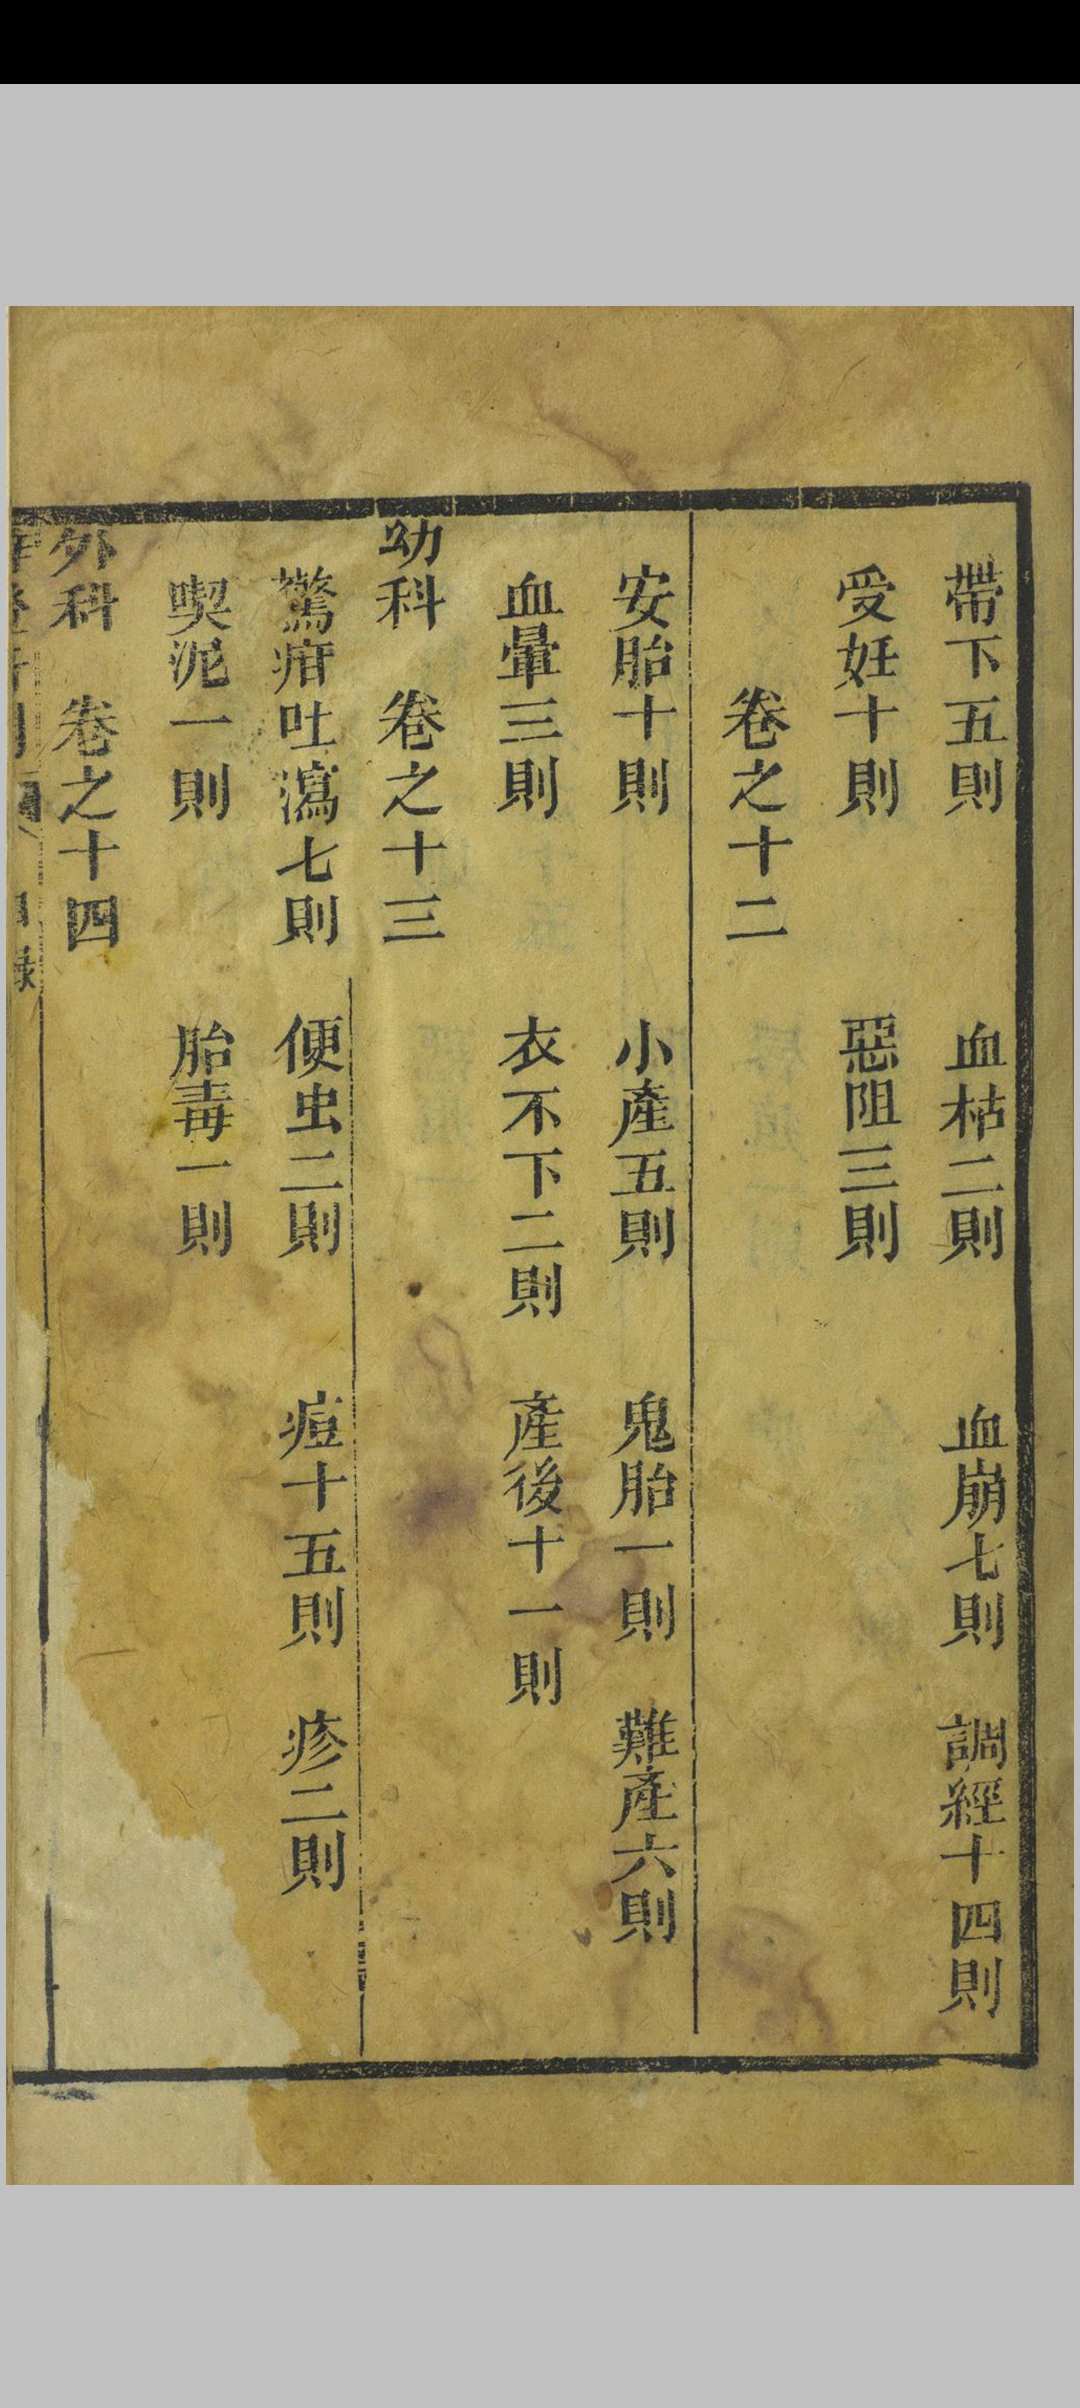 帶下五則　血枯二則　血崩七則　調經十四則
受妊十則　惡阻三則
卷之十二
安胎十則　小產五則　鬼胎一則　難產六則
血暈三則　衣不下二則　產後十一則
幼科　卷之十三
驚疳吐瀉七則　便虫二則　痘十五則　疹二則
喫泥一則　胎毒一則
外科　卷之十四
目錄